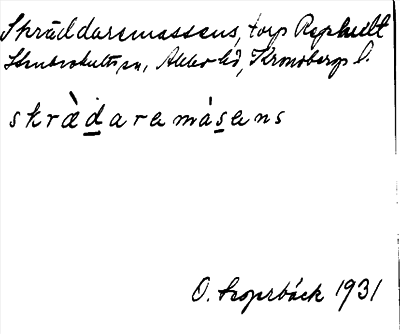 Skräddaremassens, torp Rephult
Stenbrohults sn, Allbo hd, Kronobergs l.
skrædaremásens
O. Thorsbäck 1931